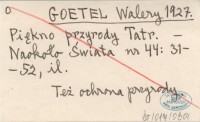 GOETEL Walery 1927.
Piękno przyrody Tatr. –
Naokoło Świata nr 44: 31–
–52, il.
Też ochrona przyrody.